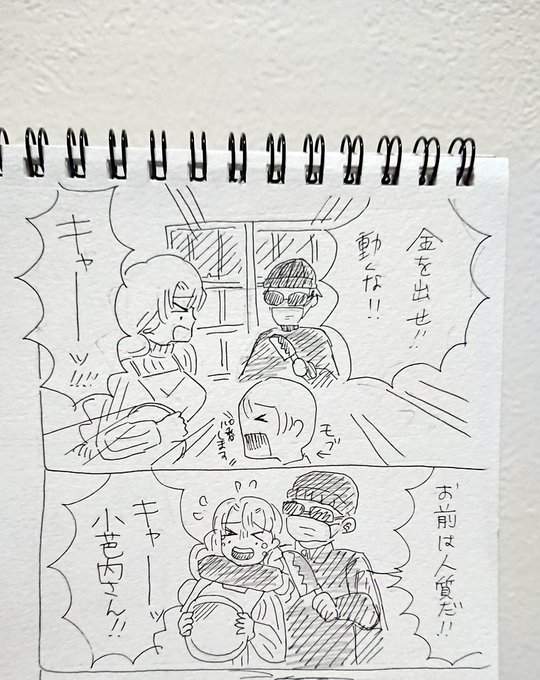 金を出せ!!
動くな!!
キャーーッ!!!
モブ
します
お前は人質だ!!
キャーーッ
小芭内さん!!